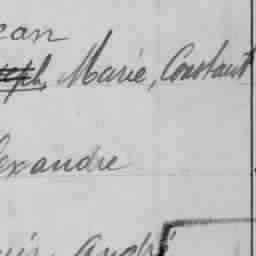 ean
seph, Marie, Constant
lexandre
uis, André